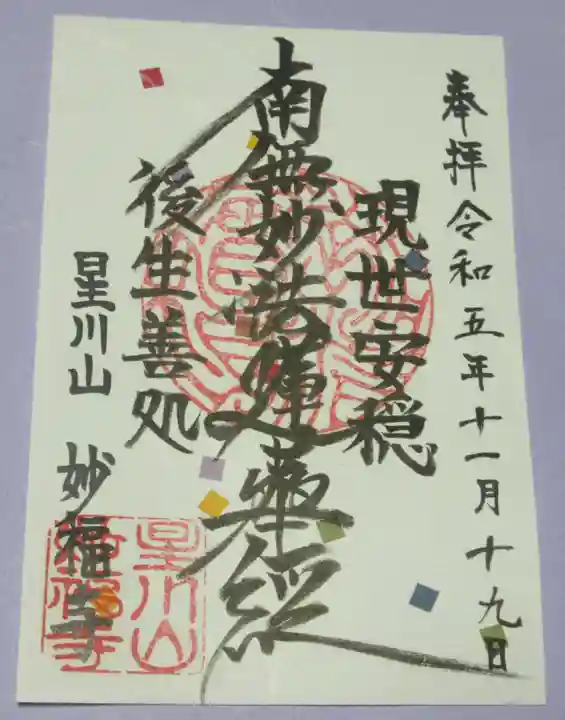 奉拝 令和五年十一月十九日
現世安穏
南無妙法蓮華経
後生善処
星川山 妙福寺
星川山
妙福寺